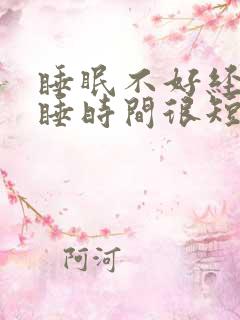 睡眠不好經
睡時間很短
阿河